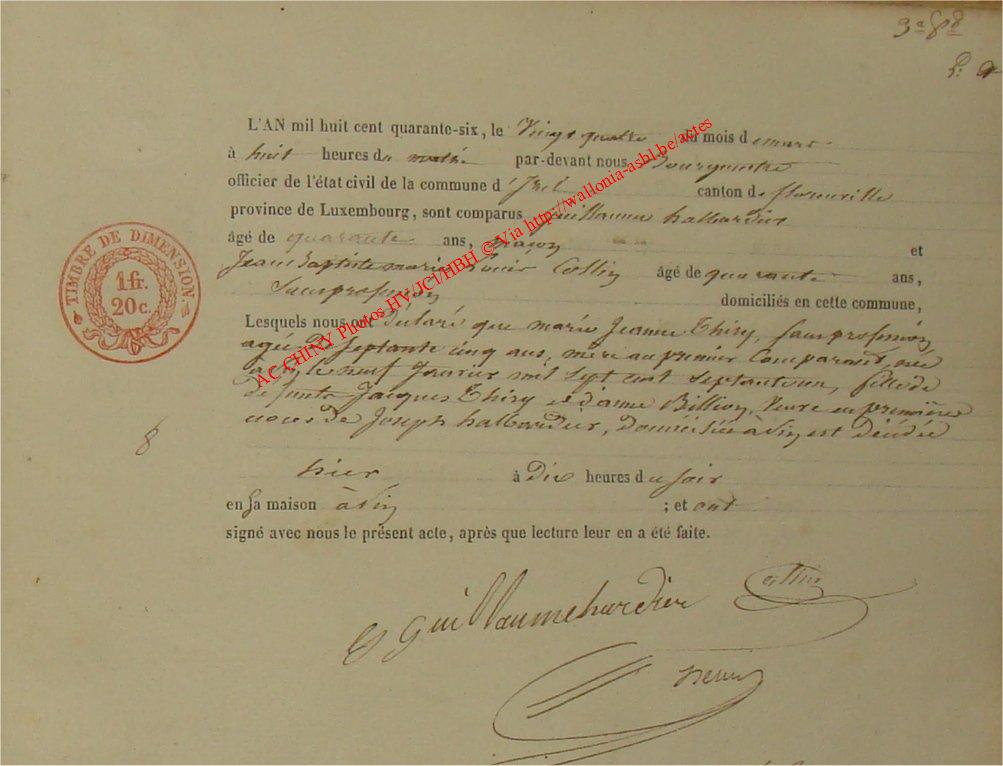 3e 8d
L'AN mil huit cent quarante-six, le Vingt quatre du mois de mars
à huit heures du matin par-devant nous Bourgmestre
officier de l'état civil de la commune d'Izel canton de florenville
province de Luxembourg, sont comparus guillaume halbardier
âgé de quarante ans, maçon et
Jean Baptiste marie Louis Collin âgé de quarante ans,
Sans profession domiciliés en cette commune,
Lesquels nous ont déclaré que marie Jeanne Thiry, sans profession
agée de septante cinq ans, mère au premier Comparant, née
à le neuf Janvier mil sept cent septante un, fille de
defunts Jacques Thiry et d'anne Billion, Veuve en premières
noces de Joseph halbardier, Domiciliée est décédée
8
hier à Dix heures du soir
en sa maison ; et ont
signé avec nous le présent acte, après que lecture leur en a été faite.
guillaumehardier Collin
TIMBRE DE DIMENSION
1 fr.
20 c.
AC CHINY Photos HV/JCI/HBH © Via http://wallonia-asbl.be/actes